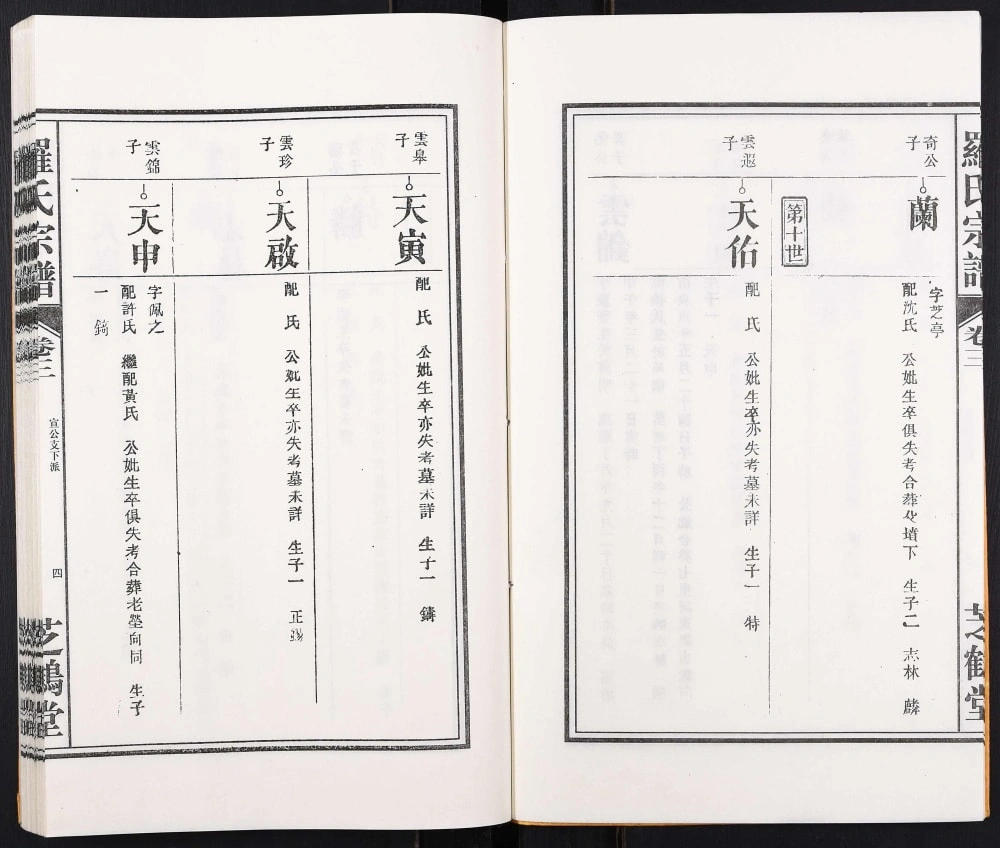 羅氏宗譜
卷三
芝鶴堂
奇公子
蘭
字芝亭
配沈氏 公妣生卒俱失考合葬 墳下 生子二 志林 麟
第十世
雲遐子
天佑
配 氏 公妣生卒亦失考墓未詳 生子一 特
雲皋子
天寅
配 氏 公妣生卒亦失考墓未詳 生子一 鑄
雲珍子
天啟
配 氏 公妣生卒亦失考墓未詳 生子一 正
雲錦子
天申
字佩之
配許氏 繼配黃氏 公妣生卒俱失考合葬老塋向同 生子
一 錡
羅氏宗譜
卷三
宣公支下派
四
芝鶴堂